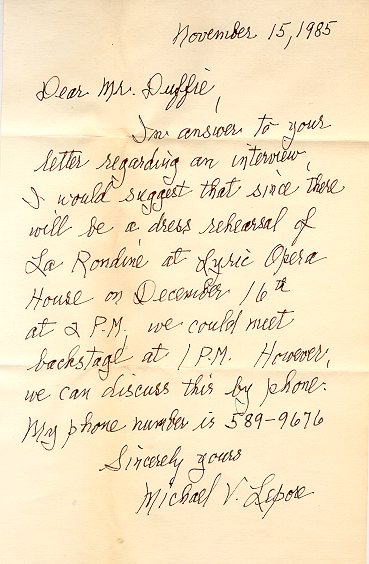 November 15, 1985
Dear Mr. Duffie,
In answer to your
letter regarding an interview,
I would suggest that since there
will be a dress rehearsal of
La Rondine at Lyric Opera
House on December 16th
at 2 P.M. we could meet
backstage at 1 P.M. However,
we can discuss this by phone.
My phone number is 589-9676
Sincerely yours
Michael V. Lepore